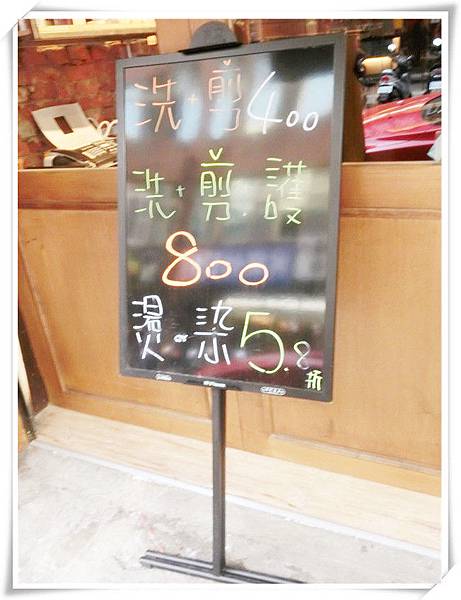 洗+剪400
洗+剪.護
800
燙or染5.8折